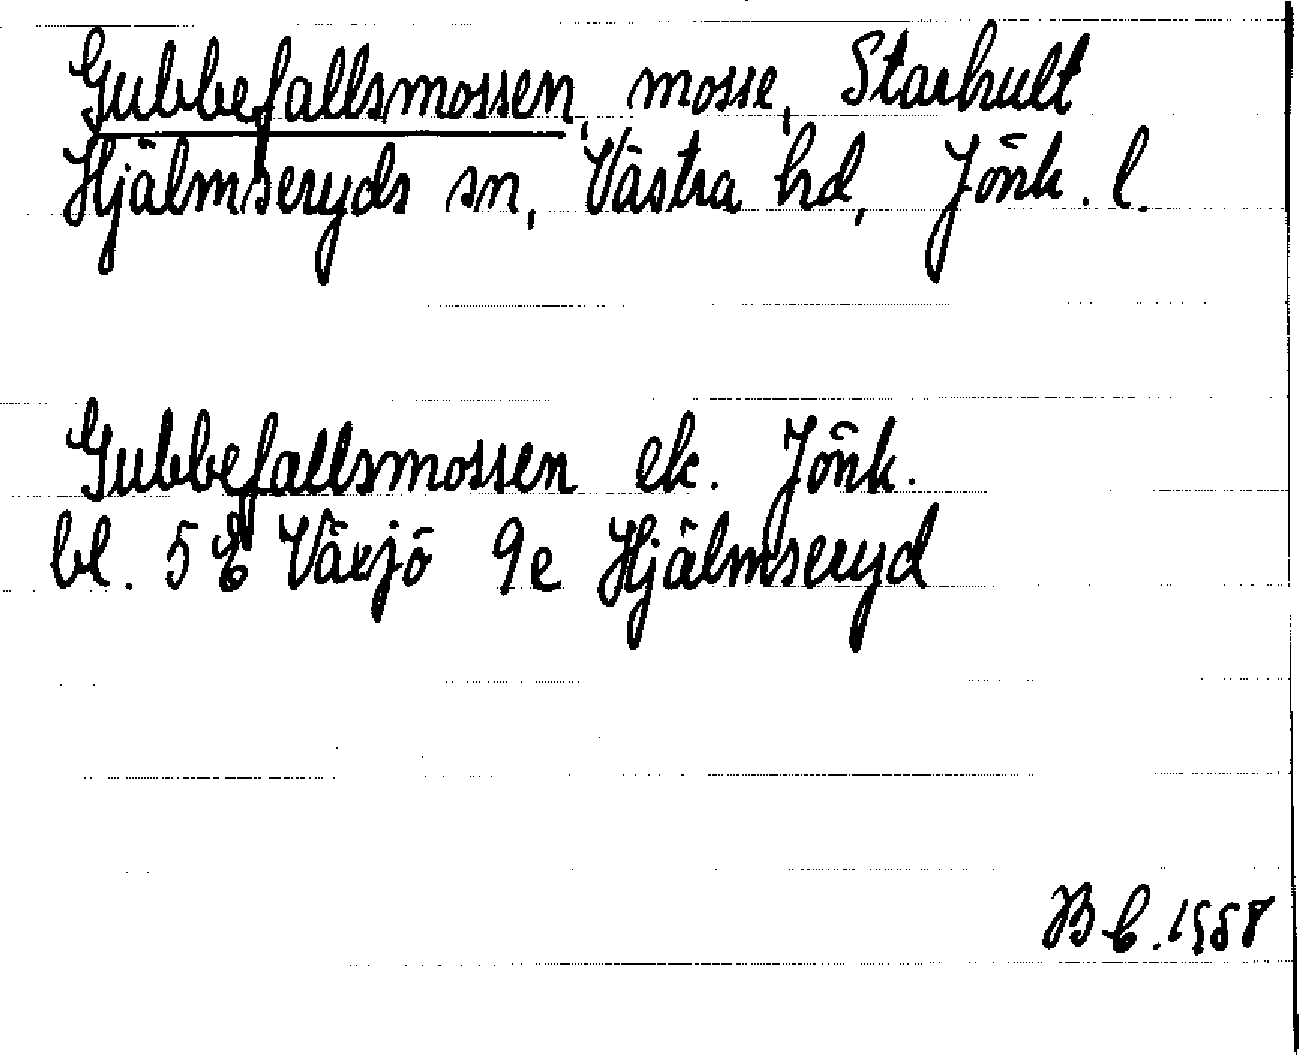 Gubbefallsmossen, mosse, Starhult
Hjälmseryds sn, Västra hd, Jönk. l.
Gubbefallsmossen ek. Jönk.
bl. 5 E Växjö 9e Hjälmseryd
B E. 1958